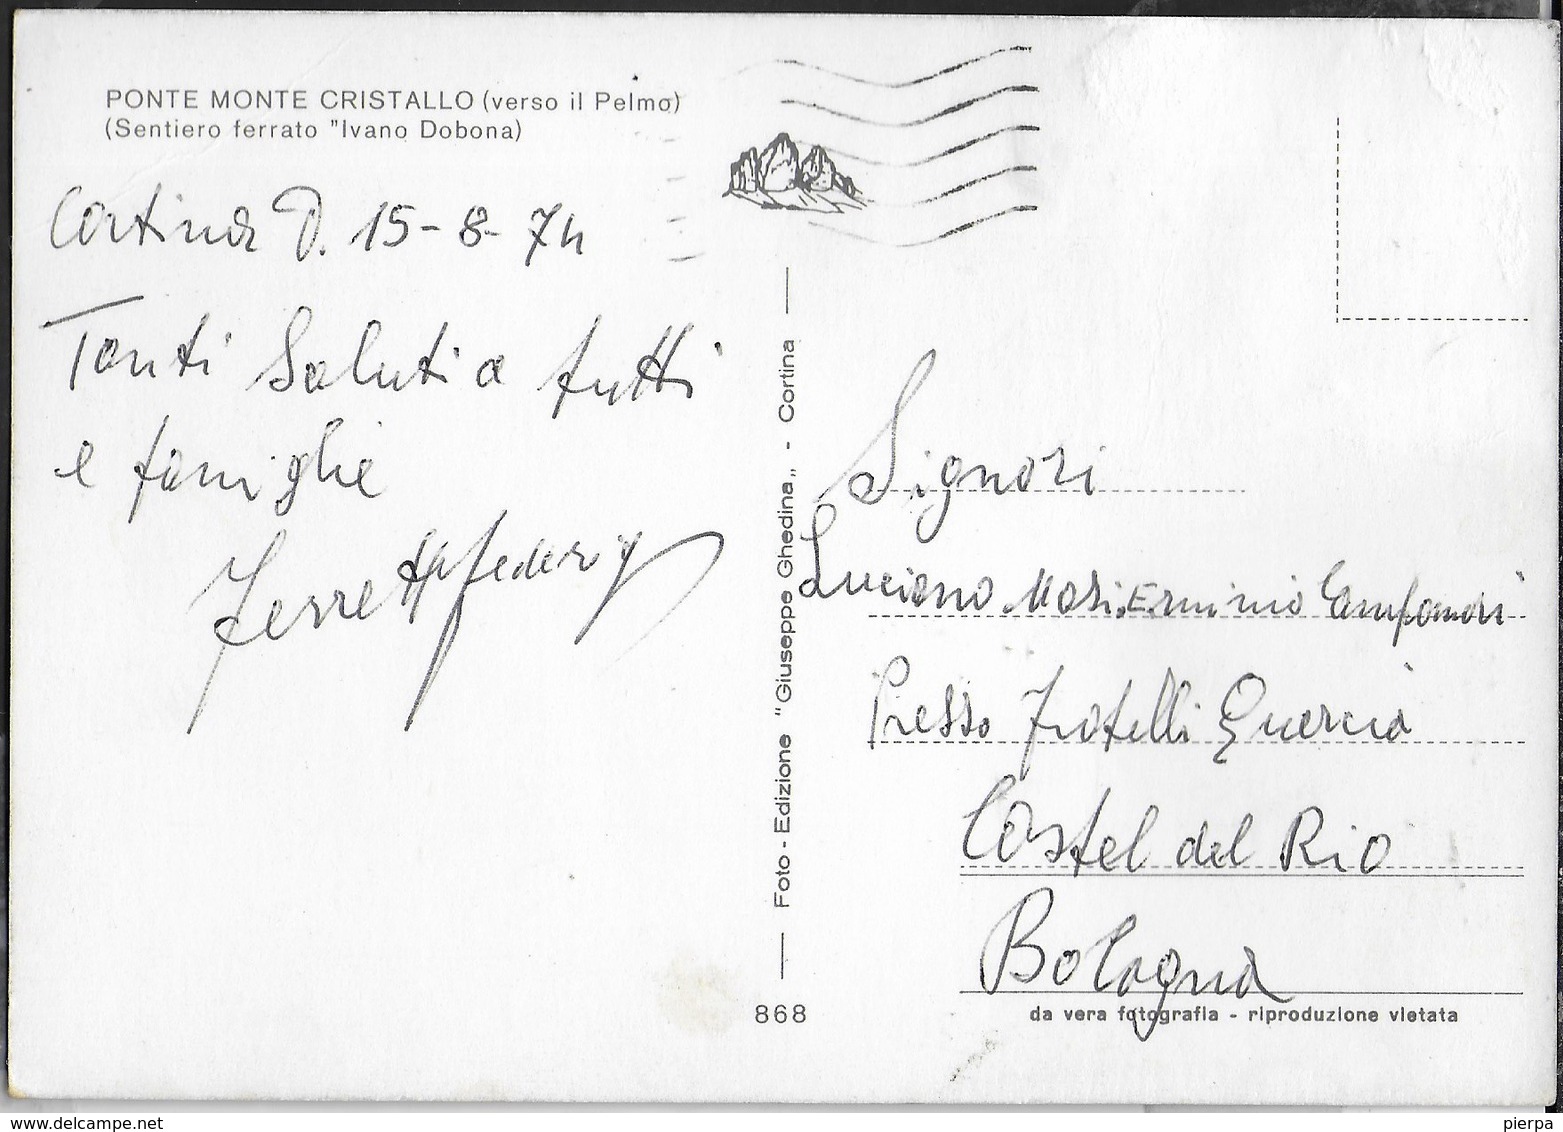 PONTE MONTE CRISTALLO (verso il Pelmo)
(Sentiero ferrato "Ivano Dobona)
Cortina D. 15-8-74
Tanti Saluti a tutti
e famiglie
Foto - Edizione "Giuseppe Ghedina„ - Cortina
868
Signori
Luciano Mari, Erminio
Presso Fratelli Quercia
Castel del Rio
Bologna
da vera fotografia - riproduzione vietata
delcampe.net
pierpa